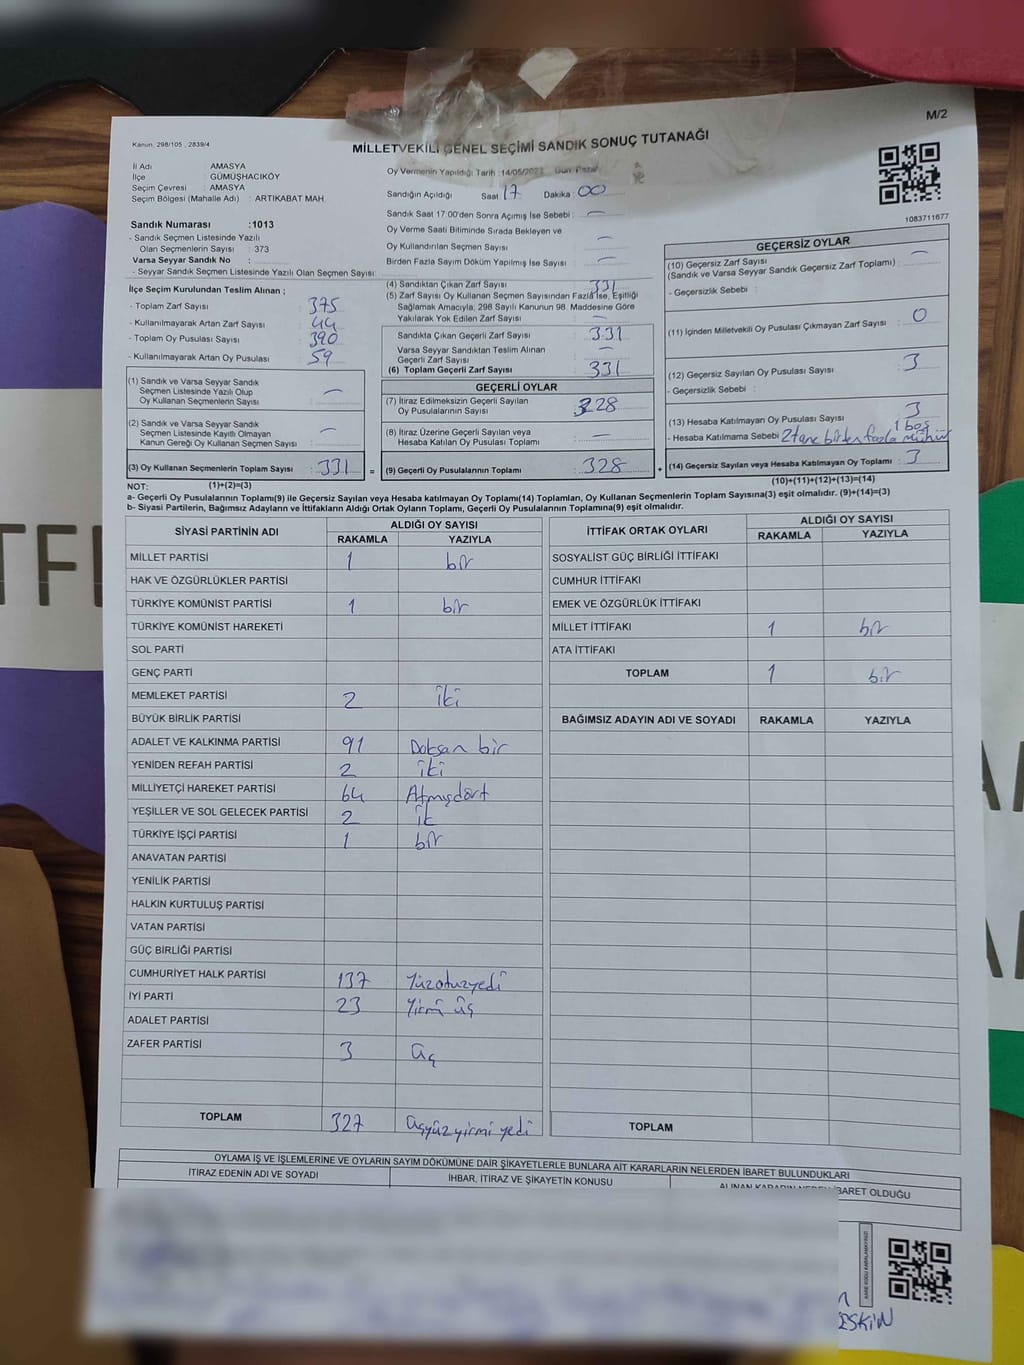 M/2
Kanun, 298/105 , 2839/4
MİLLETVEKİLİ GENEL SEÇİMİ SANDIK SONUÇ TUTANAĞI
İl Adı : AMASYA
İlçe : GÜMÜŞHACIKÖY
Seçim Çevresi : AMASYA
Seçim Bölgesi (Mahalle Adı) : ARTIKABAT MAH.
Sandık Numarası :1013
- Sandık Seçmen Listesinde Yazılı
Olan Seçmenlerin Sayısı : 373
Varsa Seyyar Sandık No :
- Seyyar Sandık Seçmen Listesinde Yazılı Olan Seçmen Sayısı:
İlçe Seçim Kurulundan Teslim Alınan ;
- Toplam Zarf Sayısı : 375
- Kullanılmayarak Artan Zarf Sayısı : 44
- Toplam Oy Pusulası Sayısı : 390
- Kullanılmayarak Artan Oy Pusulası : 59
(1) Sandık ve Varsa Seyyar Sandık
Seçmen Listesinde Yazılı Olup
Oy Kullanan Seçmenlerin Sayısı : —
(2) Sandık ve Varsa Seyyar Sandık
Seçmen Listesinde Kayıtlı Olmayan
Kanun Gereği Oy Kullanan Seçmen Sayısı : —
(3) Oy Kullanan Seçmenlerin Toplam Sayısı : 331
Oy Vermenin Yapıldığı Tarih :14/05/2023 Gün: Pazar
Sandığın Açıldığı Saat 17 Dakika : 00
Sandık Saat 17:00'den Sonra Açımış İse Sebebi : —
Oy Verme Saati Bitiminde Sırada Bekleyen ve
Oy Kullandırılan Seçmen Sayısı : —
Birden Fazla Sayım Döküm Yapılmış İse Sayısı : —
(4) Sandıktan Çıkan Zarf Sayısı : 331
(5) Zarf Sayısı Oy Kullanan Seçmen Sayısından Fazla İse, Eşitliği
Sağlamak Amacıyla, 298 Sayılı Kanunun 98. Maddesine Göre
Yakılarak Yok Edilen Zarf Sayısı : —
Sandıkta Çıkan Geçerli Zarf Sayısı : 331
Varsa Seyyar Sandıktan Teslim Alınan
Geçerli Zarf Sayısı : —
(6) Toplam Geçerli Zarf Sayısı : 331
GEÇERLİ OYLAR
(7) İtiraz Edilmeksizin Geçerli Sayılan
Oy Pusulalarının Sayısı : 328
(8) İtiraz Üzerine Geçerli Sayılan veya
Hesaba Katılan Oy Pusulası Toplamı : —
= (9) Geçerli Oy Pusulalarının Toplamı : 328
1083711677
GEÇERSİZ OYLAR
(10) Geçersiz Zarf Sayısı
(Sandık ve Varsa Seyyar Sandık Geçersiz Zarf Toplamı) : —
- Geçersizlik Sebebi :
(11) İçinden Milletvekili Oy Pusulası Çıkmayan Zarf Sayısı : 0
(12) Geçersiz Sayılan Oy Pusulası Sayısı : 3
- Geçersizlik Sebebi :
(13) Hesaba Katılmayan Oy Pusulası Sayısı : 3
1 boş
- Hesaba Katılmama Sebebi : 2 tane birden fazla mühür
+ (14) Geçersiz Sayılan veya Hesaba Katılmayan Oy Toplamı : 3
NOT: (1)+(2)=(3) (10)+(11)+(12)+(13)=(14)
a- Geçerli Oy Pusulalarının Toplamı(9) ile Geçersiz Sayılan veya Hesaba katılmayan Oy Toplamı(14) Toplamları, Oy Kullanan Seçmenlerin Toplam Sayısına(3) eşit olmalıdır. (9)+(14)=(3)
b- Siyasi Partilerin, Bağımsız Adayların ve İttifakların Aldığı Ortak Oyların Toplamı, Geçerli Oy Pusulalarının Toplamına(9) eşit olmalıdır.
SİYASİ PARTİNİN ADI ALDIĞI OY SAYISI
RAKAMLA YAZIYLA
MİLLET PARTİSİ 1 bir
HAK VE ÖZGÜRLÜKLER PARTİSİ
TÜRKİYE KOMÜNİST PARTİSİ 1 bir
TÜRKİYE KOMÜNİST HAREKETİ
SOL PARTİ
GENÇ PARTİ
MEMLEKET PARTİSİ 2 iki
BÜYÜK BİRLİK PARTİSİ
ADALET VE KALKINMA PARTİSİ 91 Doksan bir
YENİDEN REFAH PARTİSİ 2 iki
MİLLİYETÇİ HAREKET PARTİSİ 64 Atmışdört
YEŞİLLER VE SOL GELECEK PARTİSİ 2 ik
TÜRKİYE İŞÇİ PARTİSİ 1 bir
ANAVATAN PARTİSİ
YENİLİK PARTİSİ
HALKIN KURTULUŞ PARTİSİ
VATAN PARTİSİ
GÜÇ BİRLİĞİ PARTİSİ
CUMHURİYET HALK PARTİSİ 137 Yüzotuzyedi
İYİ PARTİ 23 Yirmi üç
ADALET PARTİSİ
ZAFER PARTİSİ 3 üç
TOPLAM 327 üçyüzyirmi yedi
İTTİFAK ORTAK OYLARI ALDIĞI OY SAYISI
RAKAMLA YAZIYLA
SOSYALİST GÜÇ BİRLİĞİ İTTİFAKI
CUMHUR İTTİFAKI
EMEK VE ÖZGÜRLÜK İTTİFAKI
MİLLET İTTİFAKI 1 bir
ATA İTTİFAKI
TOPLAM 1 bir
BAĞIMSIZ ADAYIN ADI VE SOYADI RAKAMLA YAZIYLA
TOPLAM
OYLAMA İŞ VE İŞLEMLERİNE VE OYLARIN SAYIM DÖKÜMÜNE DAİR ŞİKAYETLERLE BUNLARA AİT KARARLARIN NELERDEN İBARET BULUNDUKLARI
İTİRAZ EDENİN ADI VE SOYADI İHBAR, İTİRAZ VE ŞİKAYETİN KONUSU ALINAN KARARIN NEDEN İBARET OLDUĞU
ESKİN